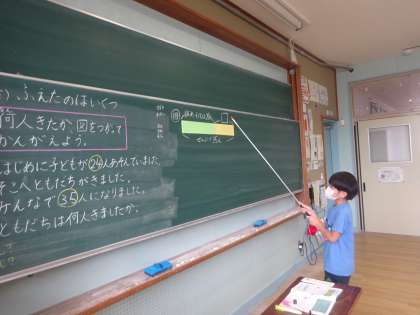 ふえたのはいくつ
何人きたか、図をつかって
かんがえよう。
はじめに子どもが24人あそんでいました。
そこへともだちがきました。
みんなで35人になりました。
ともだちは何人きましたか。